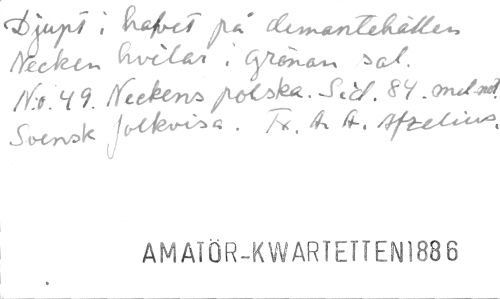 Djupt i hafvet på demantehällen
Necken hvilar i grönan sal.
No. 49. Neckens polska. Sid. 84. med not.
Svensk folkvisa. Tx. A. A. Afzelius.
AMATÖR-KWARTETTEN 1886